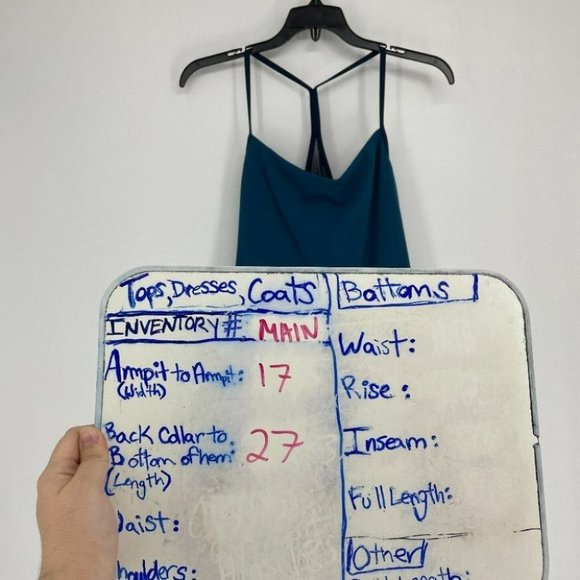 Tops, Dresses, Coats
INVENTORY# MAIN
Armpit to Armpit: 17
(Width)
Back Collar to
Bottom of hem: 27
(Length)
Waist:
Shoulders:
Bottoms
Waist:
Rise:
Inseam:
Full Length:
Other